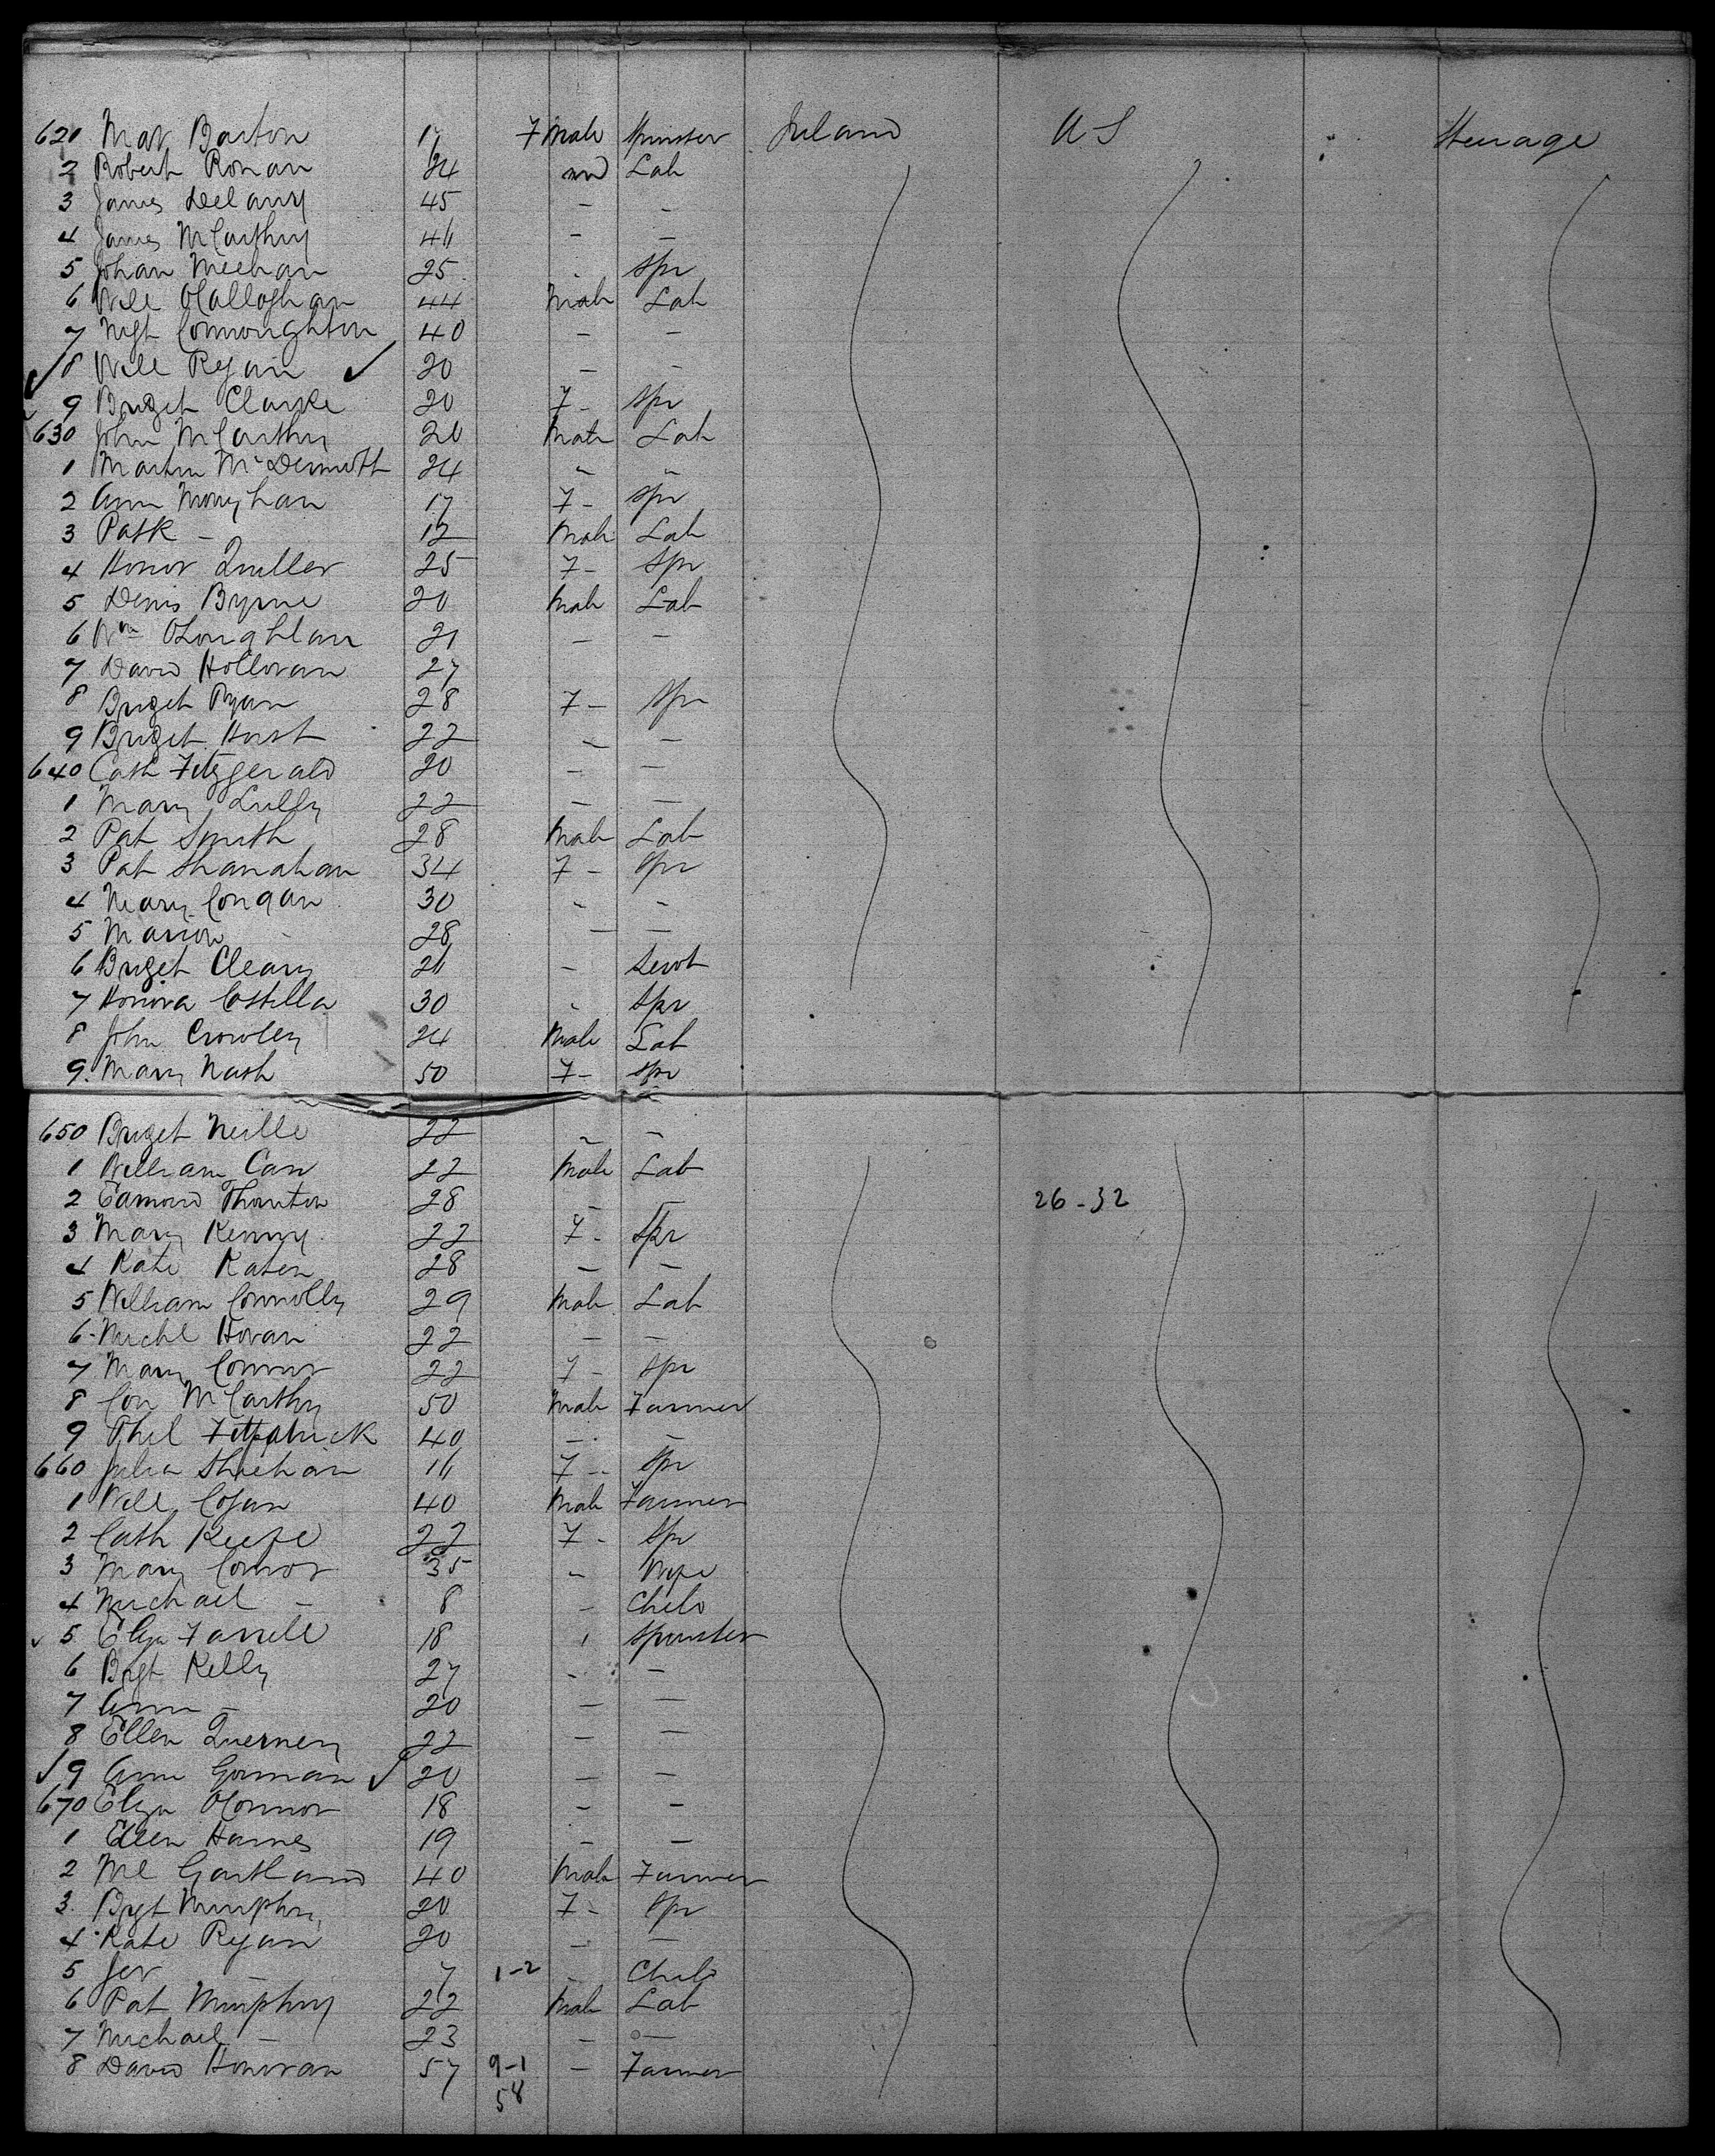 620 Mar Barton 17 7 Male Spinster Ireland U S Steerage
2 Robert Ronan 24 Lab
3 James Delany 45 — —
4 James McCarthy — —
5 Johan Meehan 25 - Spr
6 Will OCalloghan 44 Male Lab
7 Connoughton 40 — —
8 Will Ryan 20 — —
9 Bridget Clarke 20 7 - Spr
630 John McCarthy 20 Male Lab
1 Martin McDermott 24 - -
2 Ann Monyhan 17 7 - Spr
3 Patk — 12 Male Lab
4 Honor Quiller 25 7 - Spr
5 Denis Byrne 20 Male Lab
6 Wm OLoughlan 21 — —
7 David Holloran 27
8 Bridget Ryan 28 7 - Spr
9 Bridget 22 — —
640 Cath Fitzgerald 20 — —
1 Mary Lully 22 — —
2 Pat Smith 28 Male Lab
3 Pat Shanahan 34 7 - Spr
4 Mary Congan 30 - -
5 Marion - 28 — —
6 Bridget Cleary 21 - Servt
7 Honora Costilla 30 - Spr
8 John Crowley 24 Male Lab
9. Mary Nash 50 7 - Spr
650 Bridget Neille 22 - -
1 William Carr 22 Male Lab
2 Edmond Thornton 28 - — 26-32
3 Mary Kenny 22 7 - Spr
4 Kate Katen 28 — —
5 William Connolly 29 Male Lab
6 Michl Horan 22 — —
7 Mary Connor 22 7 - Spr
8 Con McCarthy 50 Male Farmer
9 Phil Fitzpatrick 40 — —
660 Julia Sheehan 16 7 - Spr
1 Will Cogan 40 Male Farmer
2 Cath Keefe 22 7 - Spr
3 Mary Connor 35 - Wife
4 Michael — 8 - Child
5 Eliza Farrell 18 Spinster
6 Brgt Kelly 27 - —
7 Ann — 20 — —
8 Ellen 22 — —
9 Ann Gorman 20 — —
670 Eliza OConnor 18 - -
1 Ellen Harnes 19 — —
2 Ml Gartland 40 Male Farmer
3. Brgt Murphy 20 7 - Spr
4 Kate Ryan 20 — —
5 Jer — 7 1-2 - Child
6 Pat Murphy 22 Male Lab
7 Michael — 23 — —
8 David Honoran 57 9-1 — Farmer
58